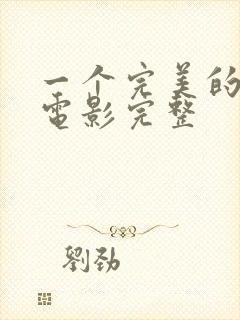 一个完美的
电影完整
劉勁